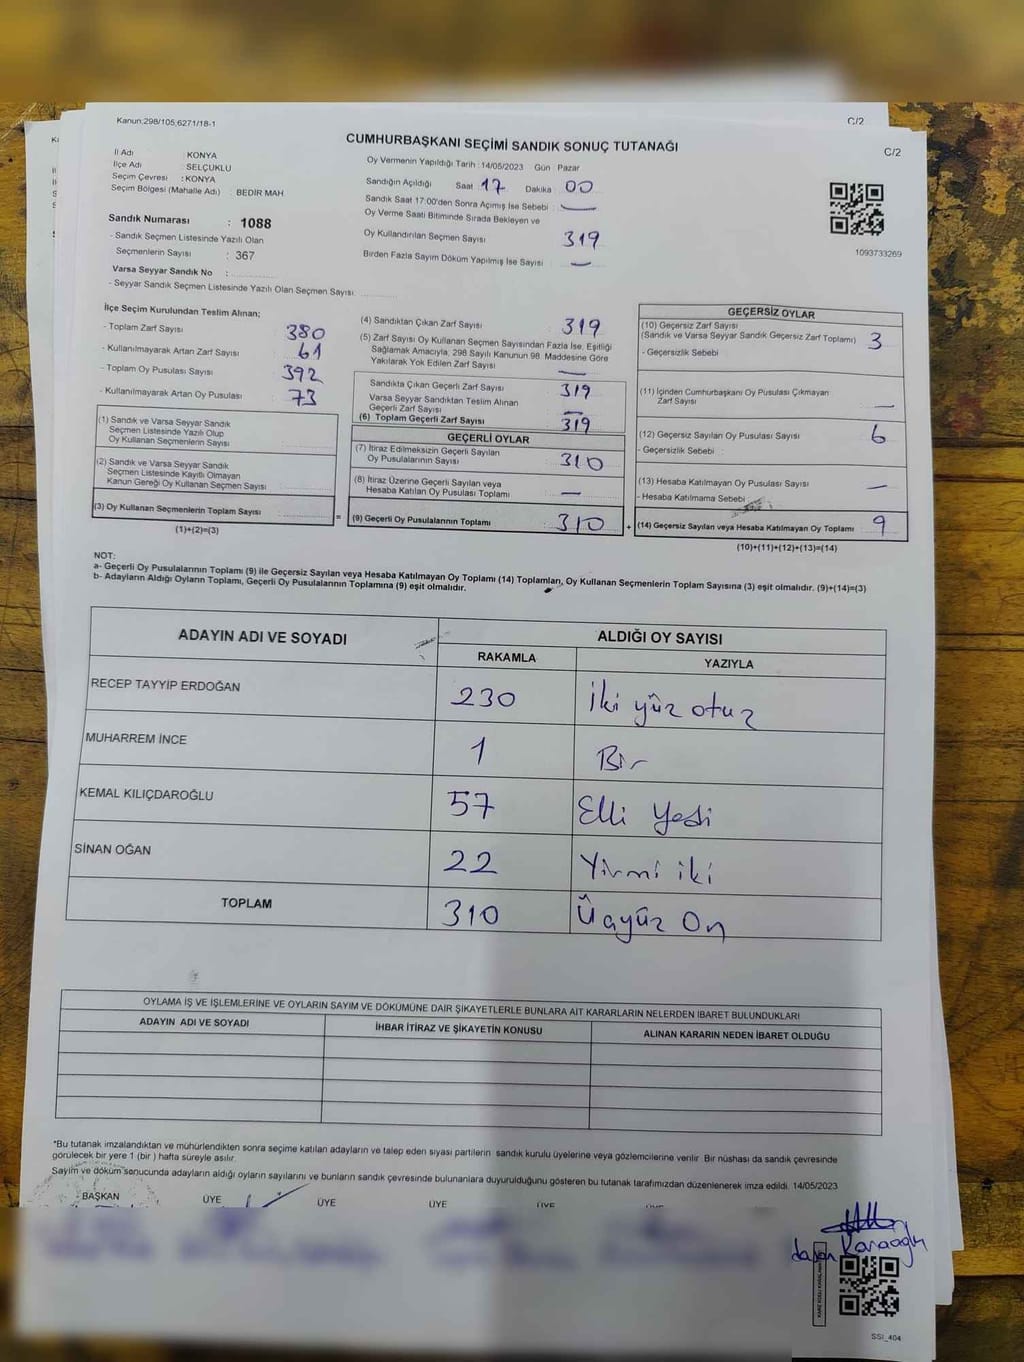 Kanun;298/105;6271/18-1
C/2
CUMHURBAŞKANI SEÇİMİ SANDIK SONUÇ TUTANAĞI
C/2
İl Adı KONYA
İlçe Adı SELÇUKLU
Seçim Çevresi : KONYA
Seçim Bölgesi (Mahalle Adı) : BEDİR MAH
Sandık Numarası : 1088
- Sandık Seçmen Listesinde Yazılı Olan
Seçmenlerin Sayısı : 367
Varsa Seyyar Sandık No :
- Seyyar Sandık Seçmen Listesinde Yazılı Olan Seçmen Sayısı:
Oy Vermenin Yapıldığı Tarih : 14/05/2023 Gün : Pazar
Sandığın Açıldığı Saat 17 Dakika : 00
Sandık Saat 17:00'den Sonra Açımış İse Sebebi : —
Oy Verme Saati Bitiminde Sırada Bekleyen ve
Oy Kullandırılan Seçmen Sayısı 319
Birden Fazla Sayım Döküm Yapılmış İse Sayısı : —
1093733269
İlçe Seçim Kurulundan Teslim Alınan;
- Toplam Zarf Sayısı 380
- Kullanılmayarak Artan Zarf Sayısı 61
- Toplam Oy Pusulası Sayısı 392
- Kullanılmayarak Artan Oy Pusulası 73
(1) Sandık ve Varsa Seyyar Sandık
Seçmen Listesinde Yazılı Olup
Oy Kullanan Seçmenlerin Sayısı
(2) Sandık ve Varsa Seyyar Sandık
Seçmen Listesinde Kayıtlı Olmayan
Kanun Gereği Oy Kullanan Seçmen Sayısı
(3) Oy Kullanan Seçmenlerin Toplam Sayısı
(1)+(2)=(3)
(4) Sandıktan Çıkan Zarf Sayısı 319
(5) Zarf Sayısı Oy Kullanan Seçmen Sayısından Fazla İse, Eşitliği
Sağlamak Amacıyla, 298 Sayılı Kanunun 98. Maddesine Göre
Yakılarak Yok Edilen Zarf Sayısı —
Sandıkta Çıkan Geçerli Zarf Sayısı 319
Varsa Seyyar Sandıktan Teslim Alınan
Geçerli Zarf Sayısı —
(6) Toplam Geçerli Zarf Sayısı 319
GEÇERLİ OYLAR
(7) İtiraz Edilmeksizin Geçerli Sayılan
Oy Pusulalarının Sayısı 310
(8) İtiraz Üzerine Geçerli Sayılan veya
Hesaba Katılan Oy Pusulası Toplamı —
= (9) Geçerli Oy Pusulalarının Toplamı 310 +
GEÇERSİZ OYLAR
(10) Geçersiz Zarf Sayısı
(Sandık ve Varsa Seyyar Sandık Geçersiz Zarf Toplamı) 3
- Geçersizlik Sebebi
(11) İçinden Cumhurbaşkanı Oy Pusulası Çıkmayan
Zarf Sayısı —
(12) Geçersiz Sayılan Oy Pusulası Sayısı 6
- Geçersizlik Sebebi :
(13) Hesaba Katılmayan Oy Pusulası Sayısı —
- Hesaba Katılmama Sebebi
(14) Geçersiz Sayılan veya Hesaba Katılmayan Oy Toplamı 9
(10)+(11)+(12)+(13)=(14)
NOT:
a- Geçerli Oy Pusulalarının Toplamı (9) ile Geçersiz Sayılan veya Hesaba Katılmayan Oy Toplamı (14) Toplamları, Oy Kullanan Seçmenlerin Toplam Sayısına (3) eşit olmalıdır. (9)+(14)=(3)
b- Adayların Aldığı Oyların Toplamı, Geçerli Oy Pusulalarının Toplamına (9) eşit olmalıdır.
ADAYIN ADI VE SOYADI ALDIĞI OY SAYISI
RAKAMLA YAZIYLA
RECEP TAYYİP ERDOĞAN 230 İki yüz otuz
MUHARREM İNCE 1 Bir
KEMAL KILIÇDAROĞLU 57 Elli Yedi
SİNAN OĞAN 22 Yirmi iki
TOPLAM 310 Üçyüz On
OYLAMA İŞ VE İŞLEMLERİNE VE OYLARIN SAYIM VE DÖKÜMÜNE DAİR ŞİKAYETLERLE BUNLARA AİT KARARLARIN NELERDEN İBARET BULUNDUKLARI
ADAYIN ADI VE SOYADI İHBAR İTİRAZ VE ŞİKAYETİN KONUSU ALINAN KARARIN NEDEN İBARET OLDUĞU
*Bu tutanak imzalandıktan ve mühürlendikten sonra seçime katılan adayların ve talep eden siyasi partilerin sandık kurulu üyelerine veya gözlemcilerine verilir. Bir nüshası da sandık çevresinde
görülecek bir yere 1 (bir ) hafta süreyle asılır.
Sayım ve döküm sonucunda adayların aldığı oyların sayılarını ve bunların sandık çevresinde bulunanlara duyurulduğunu gösteren bu tutanak tarafımızdan düzenlenerek imza edildi. 14/05/2023
BAŞKAN ÜYE ÜYE ÜYE ÜYE
Karaoğlu
SSİ_404